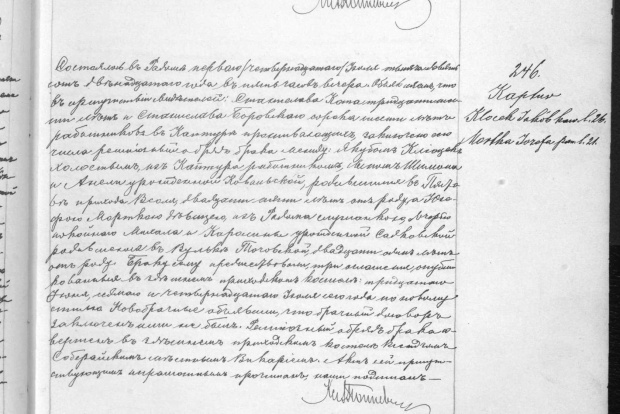 Состоялось въ Радоме первого/четырнадцатаго/Июля тысяча девять
сотъ двенадцатаго года въ пять часовъ вечера. Объявляемъ, что
въ присутствiи свидетелей: Станислава тридцати
летъ и Станислава Боровскаго сорока шести летъ
работниковъ въ Каптуре проживающихъ, заключено сего
числа религiозный обрядъ брака между: Якубомъ Клоцекъ
холостымъ, изъ Каптура работникомъ, сыномъ Шимона
и Анели урожденной Ковальской, родившимся въ
въ приходе Wсоля, двадцати шести летъ отъ роду, и Юзе-
фою Морткою девицею, изъ Радома служанкою, дочерью
покойного Михала и Каролины урожденной Садковской
родившеюся въ Вульке Тычовской двадцати одинъ летъ
отъ роду. Браку сему предшествовали три оглашенiя, опубли
кованныя въ здешнемъ приходскомъ костеле: тридцатаго
Iюня, седьмого и четырнадцатаго Iюля сего года по новому
стилю. Новобрачные объявили, что брачный договоръ
заключенъ ими не былъ. Религiозный обрядъ брака со-
вершенъ въ здешнемъ приходскомъ костеле Ксендзомъ
местнымъ Викарiемъ. Актъ сей присут-
ствующимъ неграмотнымъ прочитанъ, нами подписанъ —
246.
Каптуръ
Klocek Jakób kaw. l. 26.
Mortka Józefa pan. l. 21.